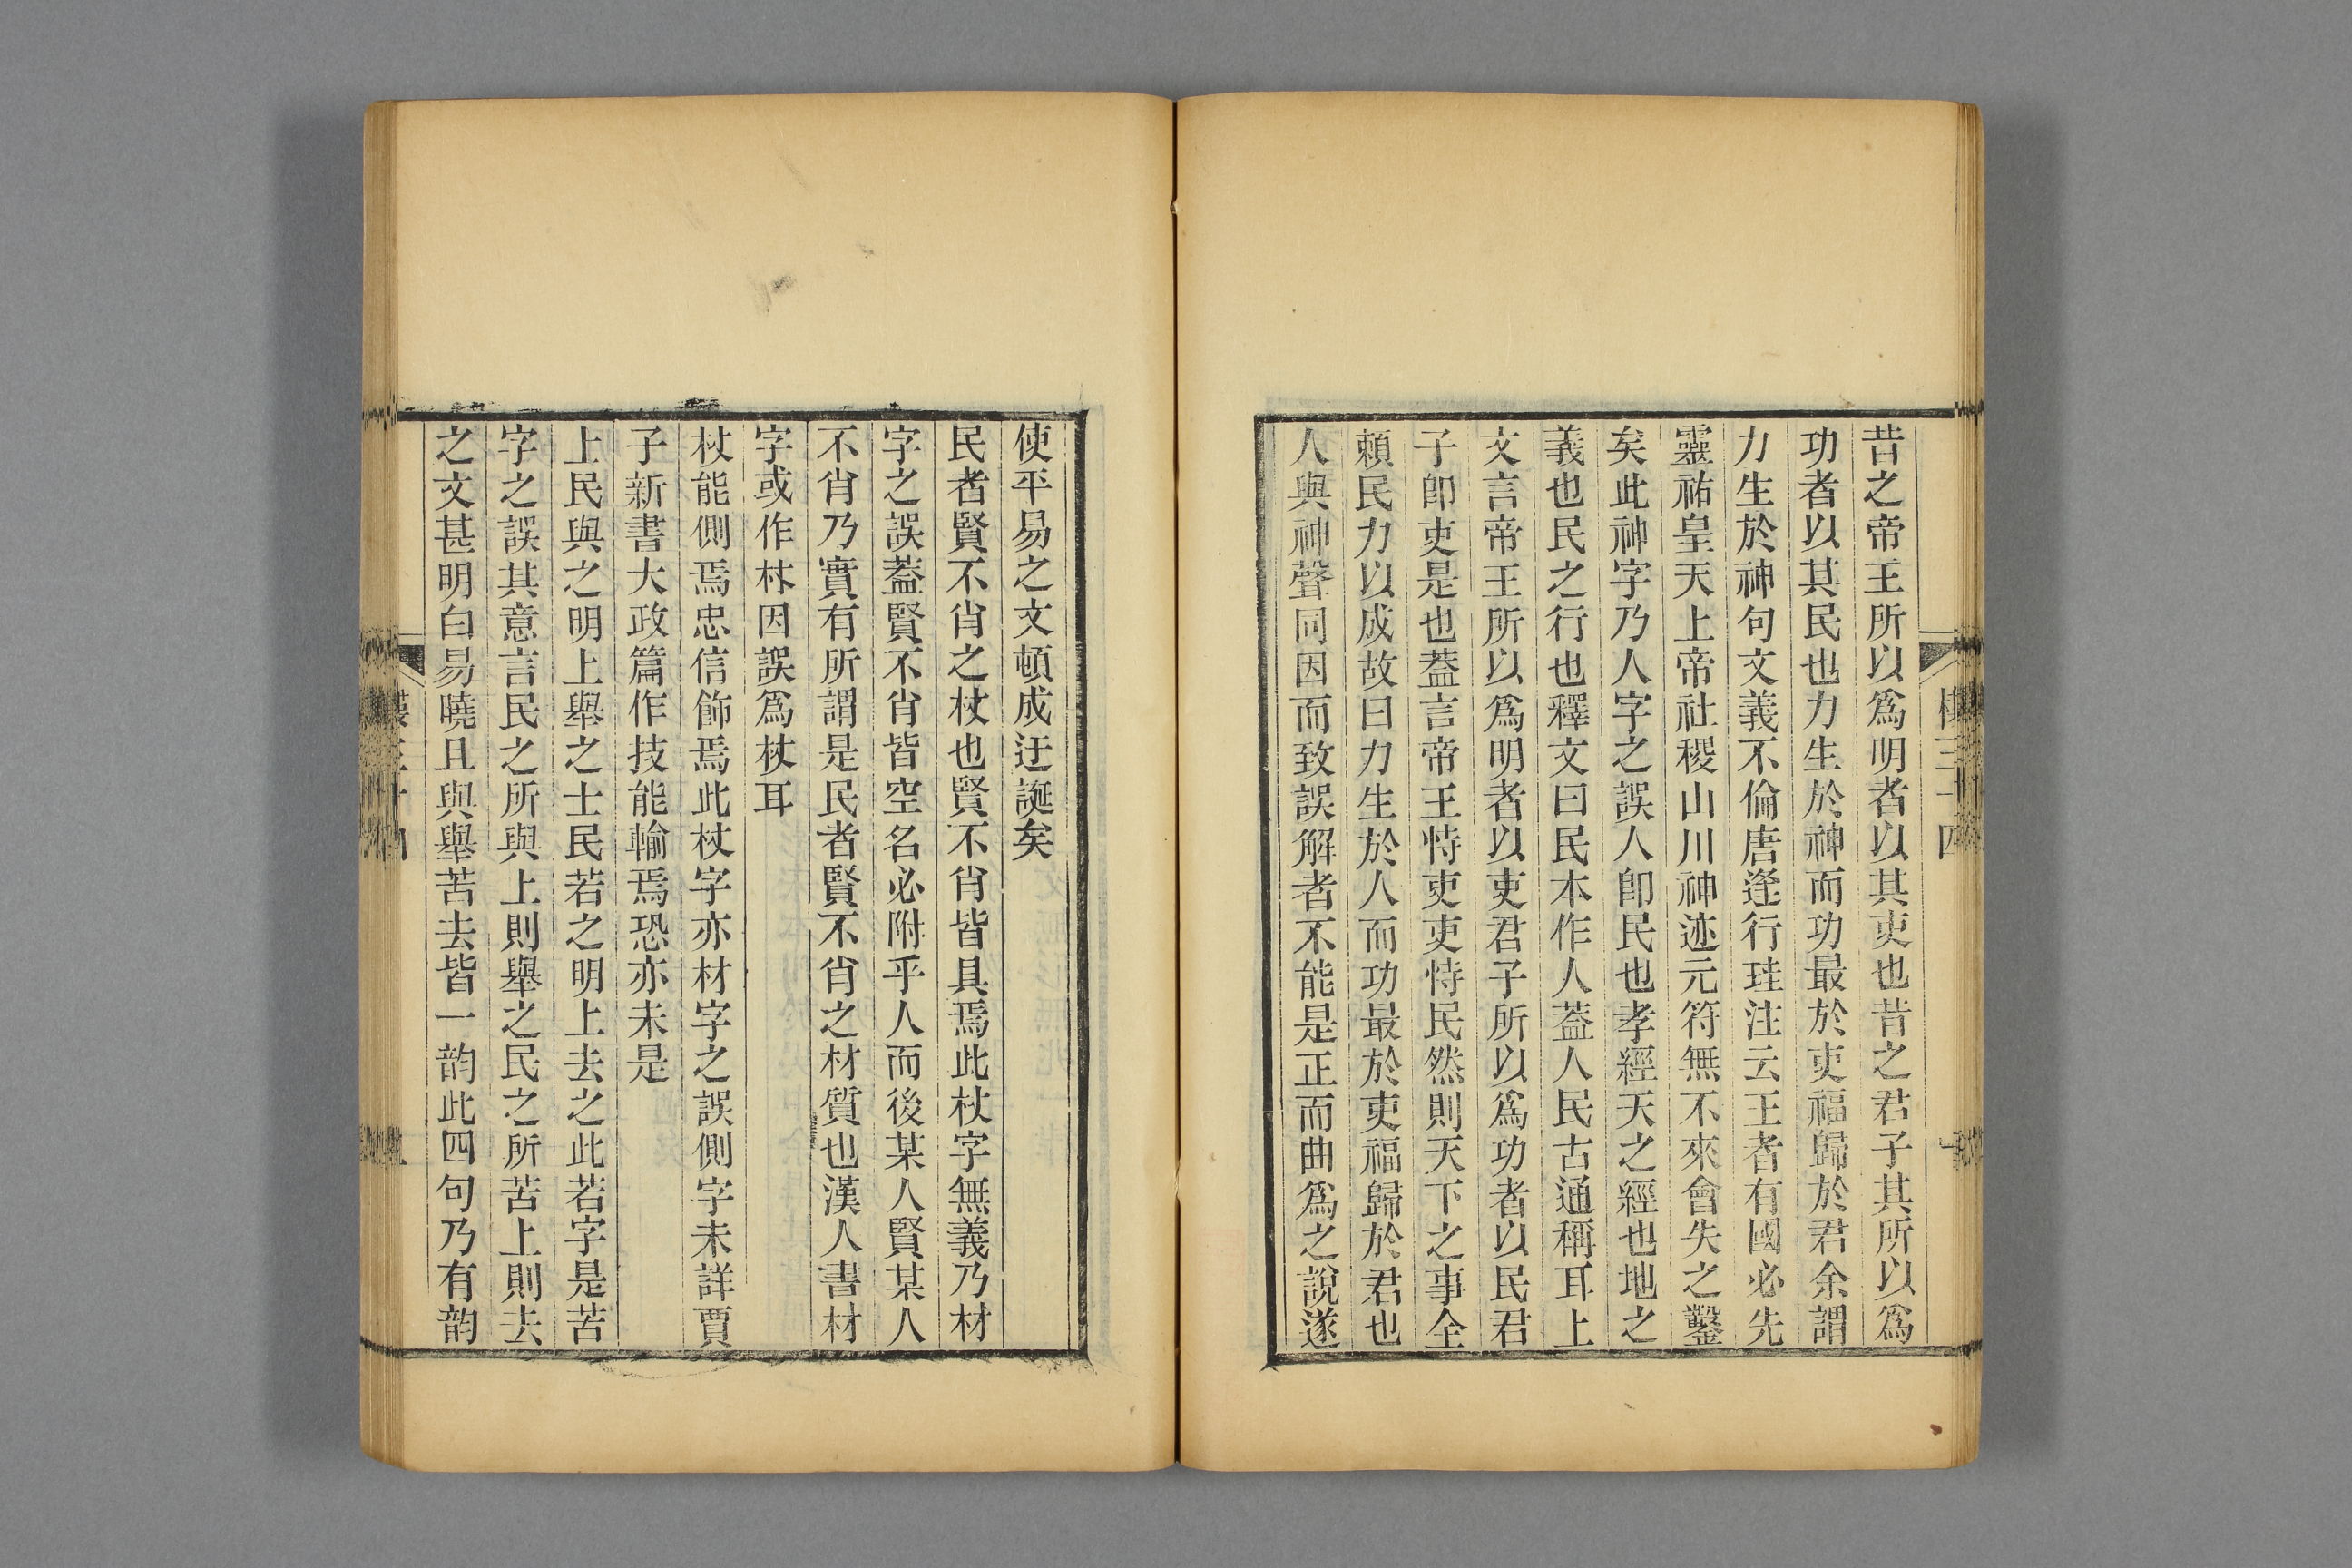 昔之帝王所以爲明者以其吏也昔之君子其所以爲
功者以其民也力生於神而功最於吏福歸於君余謂
力生於神句文義不倫唐逢行珪注云王者有國必先
靈祐皇天上帝社稷山川神迹元符無不來會失之鑿
矣此神字乃人字之誤人卽民也孝經天之經也地之
義也民之行也釋文曰民本作人蓋人民古通稱耳上
文言帝王所以爲明者以吏君子所以爲功者以民君
子卽吏是也葢言帝王恃吏吏恃民然則天下之事全
賴民力以成故曰力生於人而功最於吏福歸於君也
人與神聲同因而致誤解者不能是正而曲爲之說遂
使平易之文頓成迂誕矣
民者賢不肖之杖也賢不肖皆具焉此杖字無義乃材
字之誤葢賢不肖皆空名必附乎人而後某人賢某人
不肖乃實有所謂是民者賢不肖之材質也漢人書材
字或作杺因誤爲杖耳
杖能側焉忠信飾焉此杖字亦材字之誤側字未詳賈
子新書大政篇作技能輸焉恐亦未是
上民與之明上舉之士民若之明上去之此若字是苦
字之誤其意言民之所與上則舉之民之所苦上則去
之文甚明白易曉且與舉苦去皆一韵此四句乃有韵